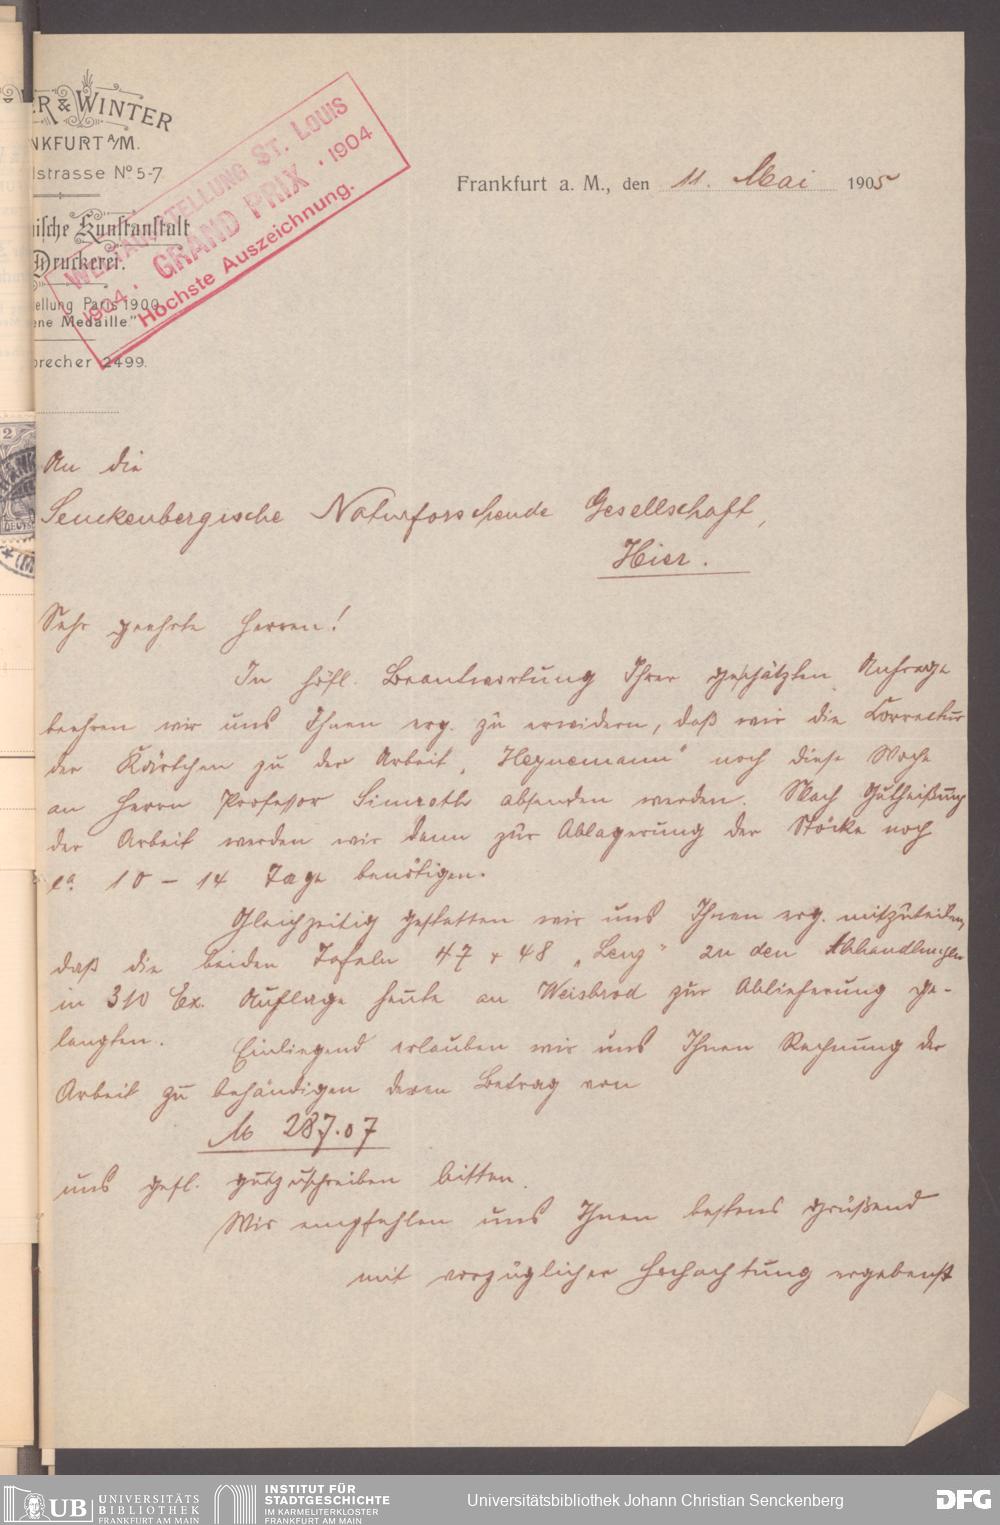 ER & WINTER
NKFURT A/M.
lstrasse No 5-7.
ische Kunstanstalt
Druckerei.
ellung Paris 1900
ene Medaille"
precher 2499.
WELTAUSSTELLUNG ST. LOUIS
1904. GRAND PRIX . 1904
Höchste Auszeichnung.
Frankfurt a. M., den 11. Mai 1905
An die
Senckenbergische Naturforschende Gesellschaft,
Hier.
Sehr geehrte Herren!
In höfl. Beantwortung Ihrer geschätzten Anfrage
beehren wir uns Ihnen erg. zu erwidern, daß wir die Correctur
der Kärtchen zu der Arbeit „Heynemann" noch diese Woche
an Herrn Professor Simroth absenden werden. Nach Gutheißung
der Arbeit werden wir dann zur Ablagerung der Stöcke noch
ca 10 – 14 Tage benötigen.
Gleichzeitig gestatten wir uns Ihnen erg. mitzuteilen,
daß die beiden Tafeln 47 + 48 „Lenz" zu den Abhandlungen
in 310 Ex. Auflage heute an Weisbrod zur Ablieferung ge-
langten. Einliegend erlauben wir uns Ihnen Rechnung der
Arbeit zu behändigen deren Betrag von
M 287.07
uns gefl. gutzuschreiben bitten.
Wir empfehlen uns Ihnen bestens grüßend
mit vorzüglicher Hochachtung ergebenst
2
UB UNIVERSITÄTS
BIBLIOTHEK
FRANKFURT AM MAIN
INSTITUT FÜR
STADTGESCHICHTE
IM KARMELITERKLOSTER
FRANKFURT AM MAIN
Universitätsbibliothek Johann Christian Senckenberg
DFG